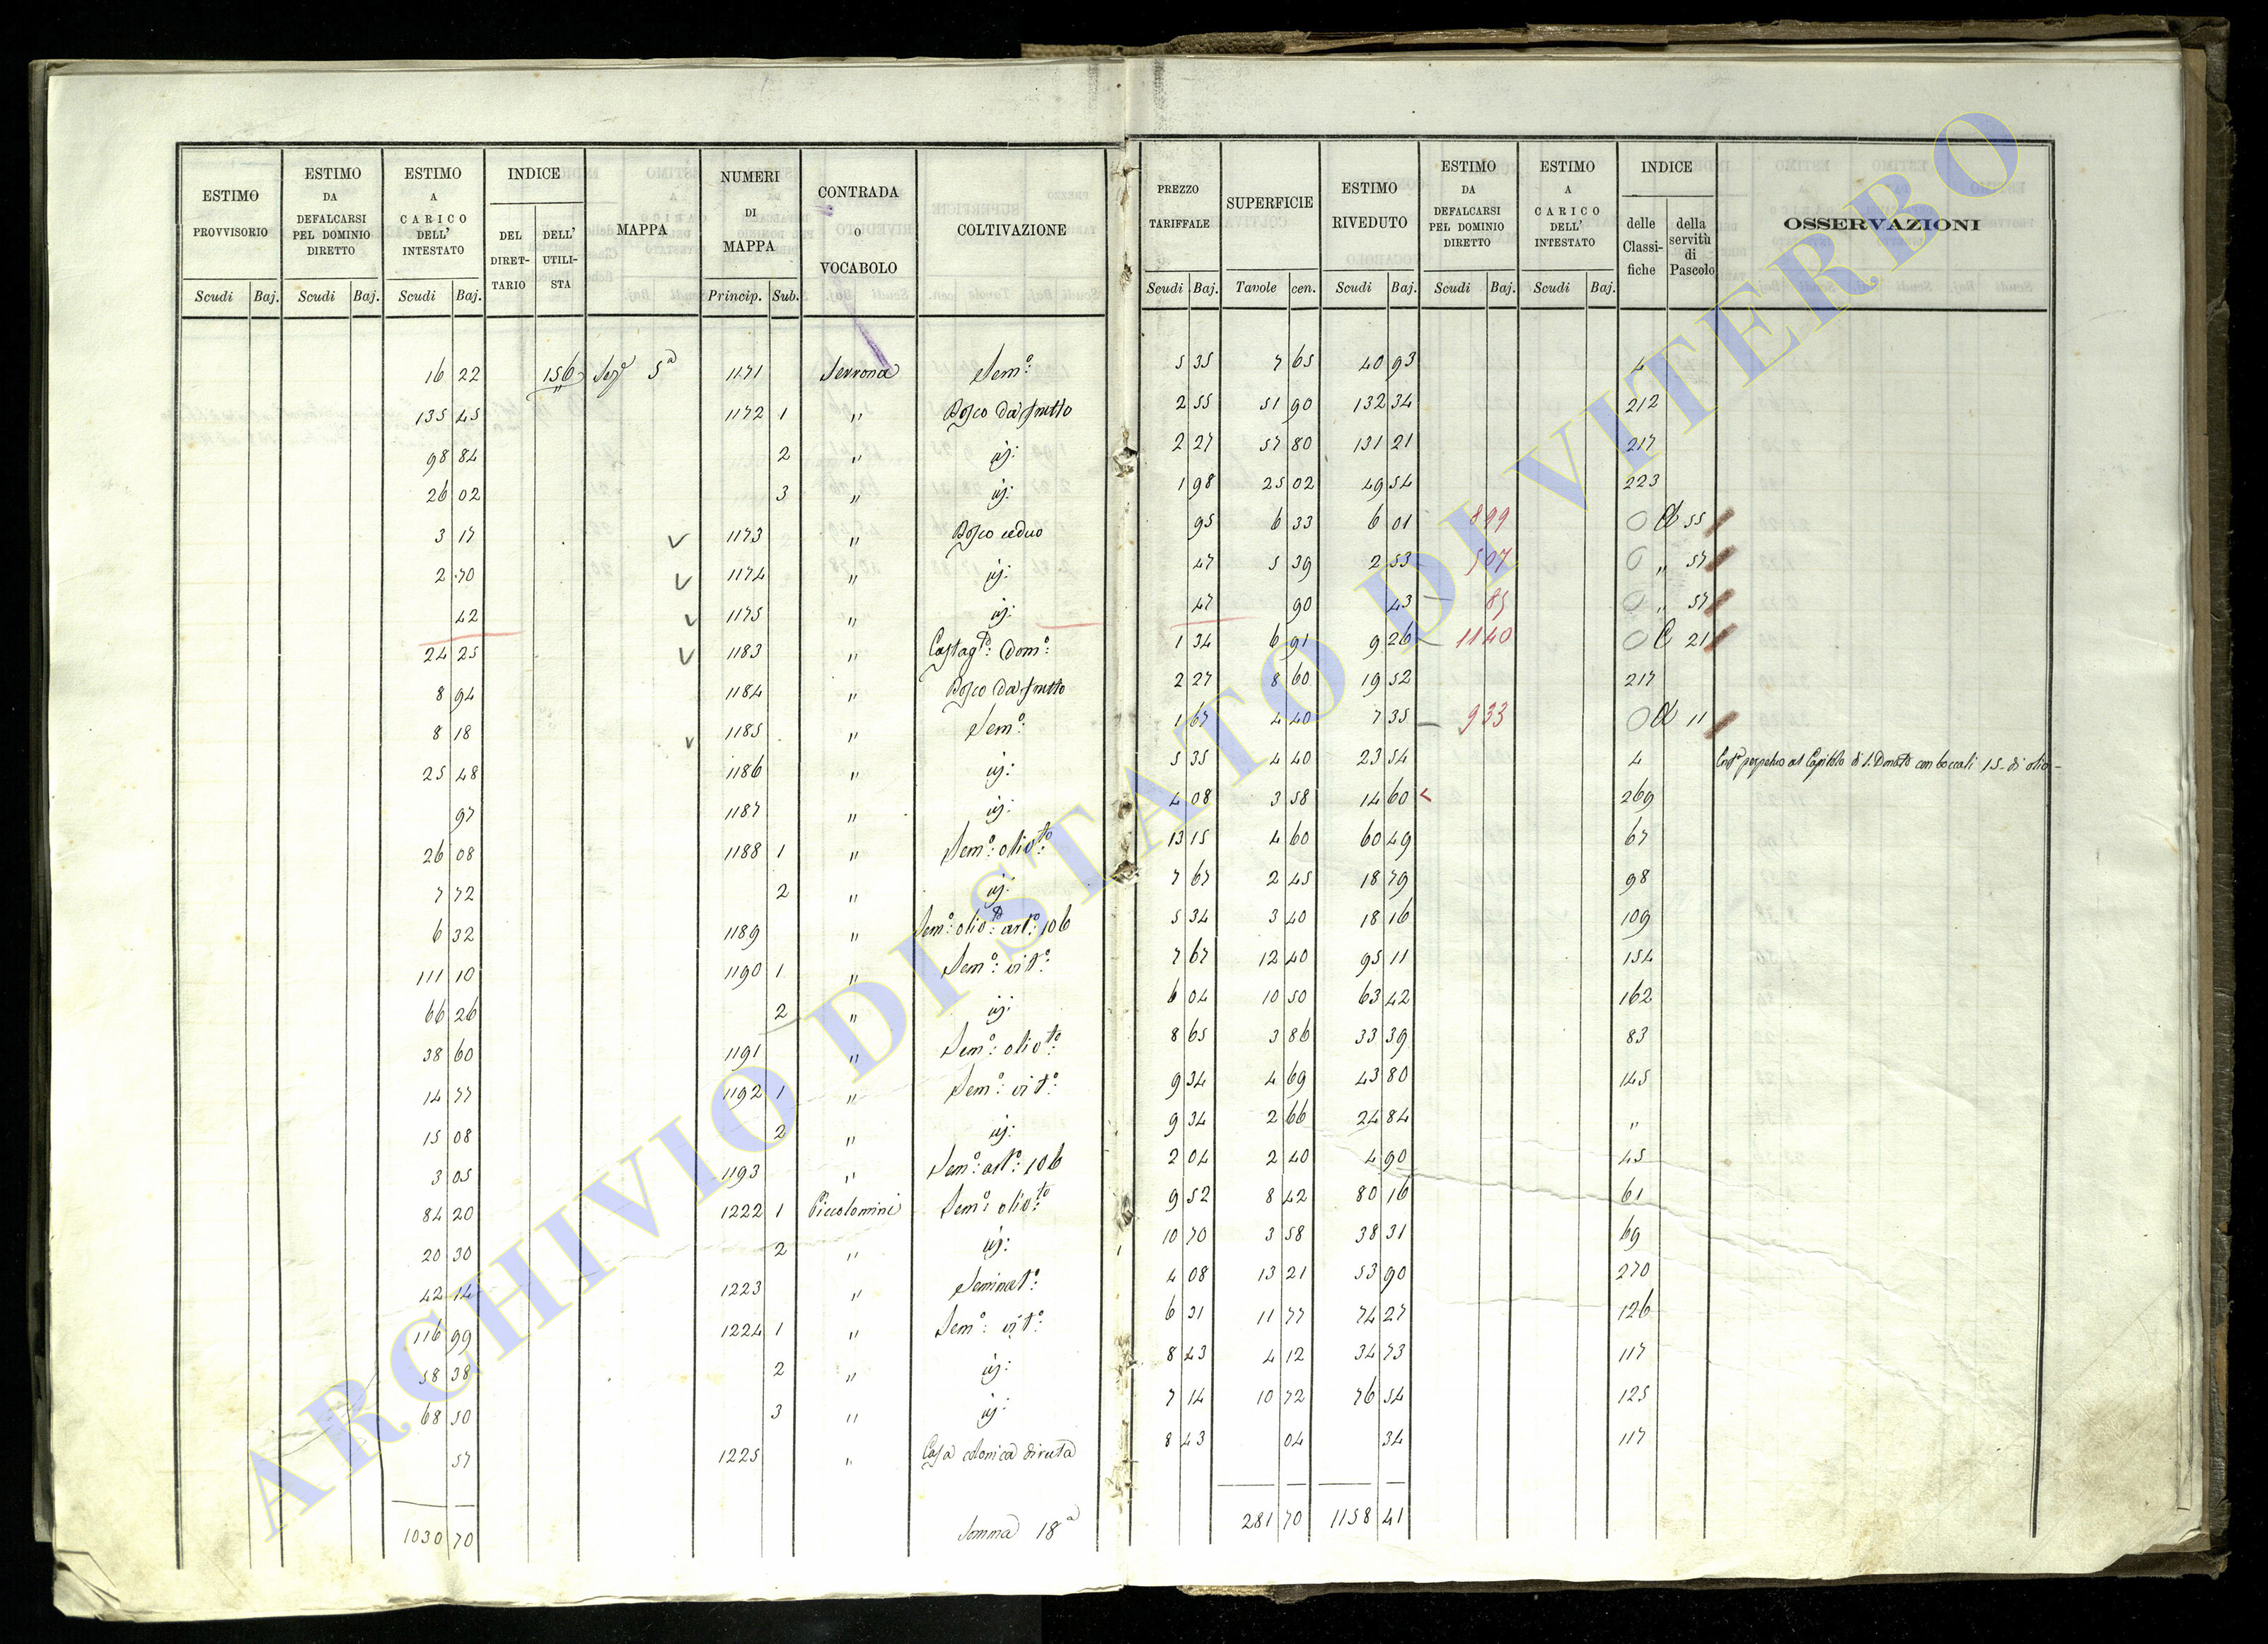 ESTIMO PROVVISORIO | ESTIMO DA DEFALCARSI PEL DOMINIO DIRETTO | ESTIMO A CARICO DELL' INTESTATO | INDICE DEL DIRET-TARIO | DELL' UTILI-STA | MAPPA | NUMERI DI MAPPA | CONTRADA O VOCABOLO | COLTIVAZIONE | PREZZO TARIFFALE | SUPERFICIE | ESTIMO RIVEDUTO | ESTIMO DA DEFALCARSI PEL DOMINIO DIRETTO | ESTIMO A CARICO DELL' INTESTATO | INDICE delle Classi-fiche | della servitù di Pascolo | OSSERVAZIONI
Scudi Baj. | Scudi Baj. | Scudi Baj. | Princip. Sub. | Scudi Baj. | Tavole cen. | Scudi Baj. | Scudi Baj. | Scudi Baj.
16 22 | 156 | Sez.e 5a | 1171 | Serrona | Sem.o | 5 35 | 7 65 | 40 93 | 4
135 45 | 1172 1 | " | Bosco da frutto | 2 55 | 51 90 | 132 34 | 212
98 84 | 2 | " | id: | 2 27 | 57 80 | 131 21 | 217
26 02 | 3 | " | id: | 1 98 | 25 02 | 49 54 | 223
3 17 | 1173 | " | Bosco ceduo | 95 | 6 33 | 6 01 | 899 | 55
2 70 | 1174 | " | id: | 47 | 5 39 | 2 53 | 507 | " 57
42 | 1175 | " | id: | 47 | 90 | 43 | 85 | " 57
24 25 | 1183 | " | Castag.to: Dom.o: | 1 34 | 6 91 | 9 26 | 1140 | C 21
8 94 | 1184 | " | Bosco da frutto | 2 27 | 8 60 | 19 52 | 217
8 18 | 1185 | " | Sem.o: | 1 67 | 4 40 | 7 35 | 933 | 11
25 48 | 1186 | " | id: | 5 35 | 4 40 | 23 54 | 4 | perpetuo al Capitolo di S. Donato con boccali 15 di olio
97 | 1187 | " | id: | 4 08 | 3 58 | 14 60 | 269
26 08 | 1188 1 | " | Sem.o: olio.to: | 13 15 | 4 60 | 60 49 | 67
7 72 | 2 | " | id: | 7 67 | 2 45 | 18 79 | 98
6 32 | 1189 | " | Sem.o: olio.to: art.o: 106 | 5 34 | 3 40 | 18 16 | 109
111 10 | 1190 1 | " | Sem.o: vit.o: | 7 67 | 12 40 | 95 11 | 154
66 26 | 2 | " | id: | 6 04 | 10 50 | 63 42 | 162
38 60 | 1191 | " | Sem.o: olio.to: | 8 65 | 3 86 | 33 39 | 83
14 77 | 1192 1 | " | Sem.o: vit.o: | 9 34 | 4 69 | 43 80 | 145
15 08 | 2 | " | id: | 9 34 | 2 66 | 24 84 | "
3 05 | 1193 | " | Sem.o: art.o: 106 | 2 04 | 2 40 | 4 90 | 45
84 20 | 1222 1 | Piccolomini | Sem.o: olio.to: | 9 52 | 8 42 | 80 16 | 61
20 30 | 2 | " | id: | 10 70 | 3 58 | 38 31 | 69
42 14 | 1223 | " | Seminat.o: | 4 08 | 13 21 | 53 90 | 270
116 99 | 1224 1 | " | Sem.o: vit.o: | 6 31 | 11 77 | 74 27 | 126
58 38 | 2 | " | id: | 8 43 | 4 12 | 34 73 | 117
68 50 | 3 | " | id: | 7 14 | 10 72 | 76 54 | 125
57 | 1225 | " | Casa colonica diruta | 8 43 | 04 | 34 | 117
1030 70 | Somma 18a | 281 70 | 1158 41
ARCHIVIO DI STATO DI VITERBO